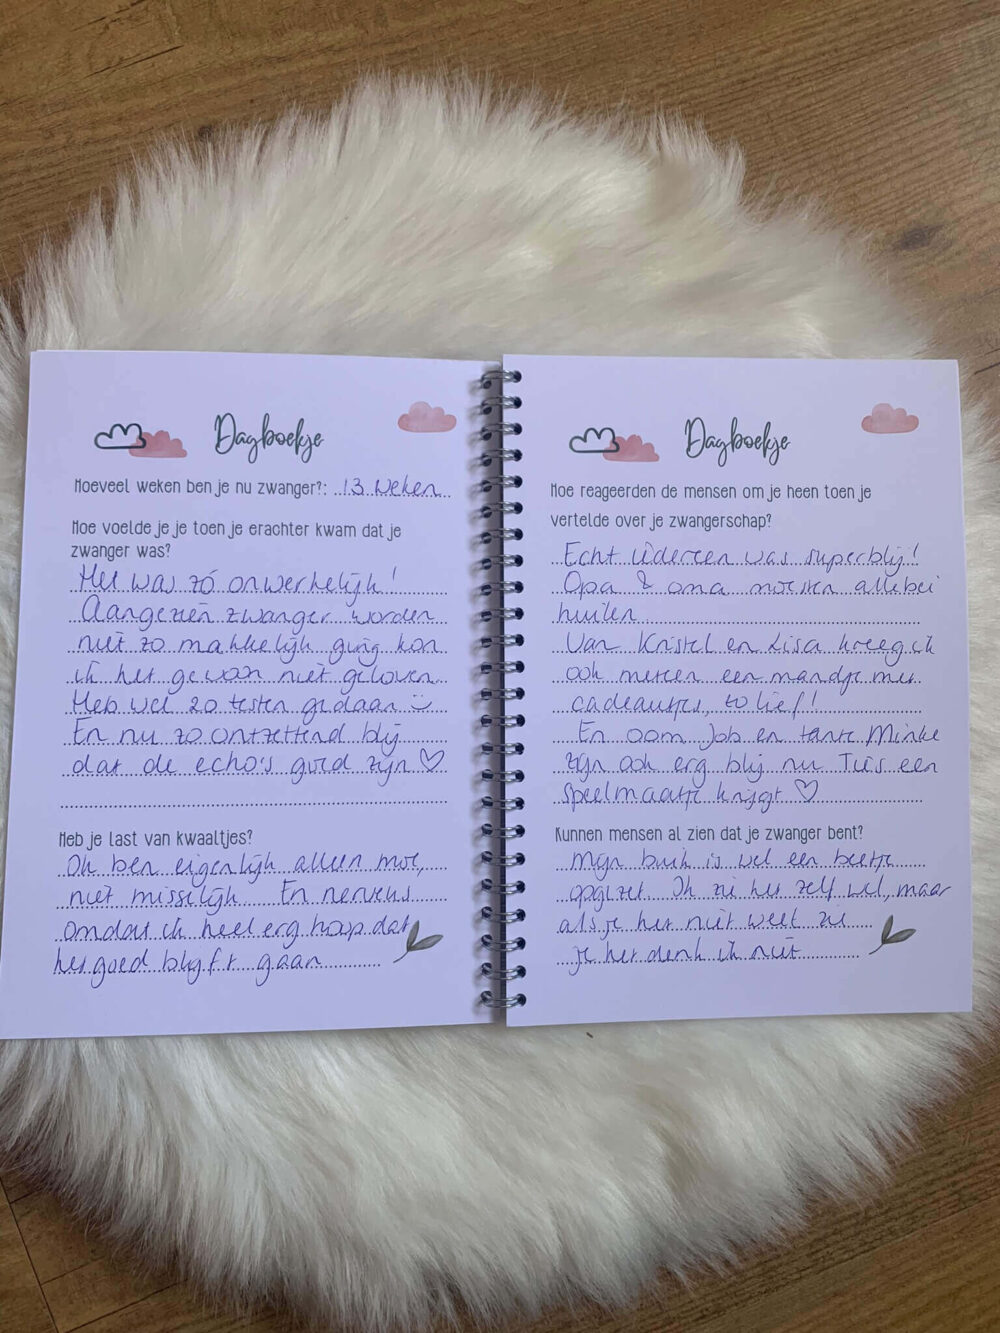 Dagboekje
Hoeveel weken ben je nu zwanger?: 13 weken
Hoe voelde je je toen je erachter kwam dat je
zwanger was?
Het was zó onwerkelijk!
Aangezien zwanger worden
niet zo makkelijk ging kon
ik het gewoon niet geloven.
Heb wel 20 testen gedaan :)
En nu zo ontzettend blij
dat de echo's goed zijn ♡
Heb je last van kwaaltjes?
Ik ben eigenlijk alleen moe,
niet misselijk. En nerveus
omdat ik heel erg hoop dat
het goed blijft gaan
Dagboekje
Hoe reageerden de mensen om je heen toen je
vertelde over je zwangerschap?
Echt iedereen was superblij!
Opa & oma moesten allebei
huilen.
Van Kristel en Lisa kreeg ik
ook meteen een mandje met
cadeautjes, zo lief!
En oom Job en tante Minke
zijn ook erg blij nu Tijs een
speelmaatje krijgt ♡
Kunnen mensen al zien dat je zwanger bent?
Mijn buik is wel een beetje
opgezet. Ik zie het zelf wel, maar
als je het niet weet zie
je het denk ik niet